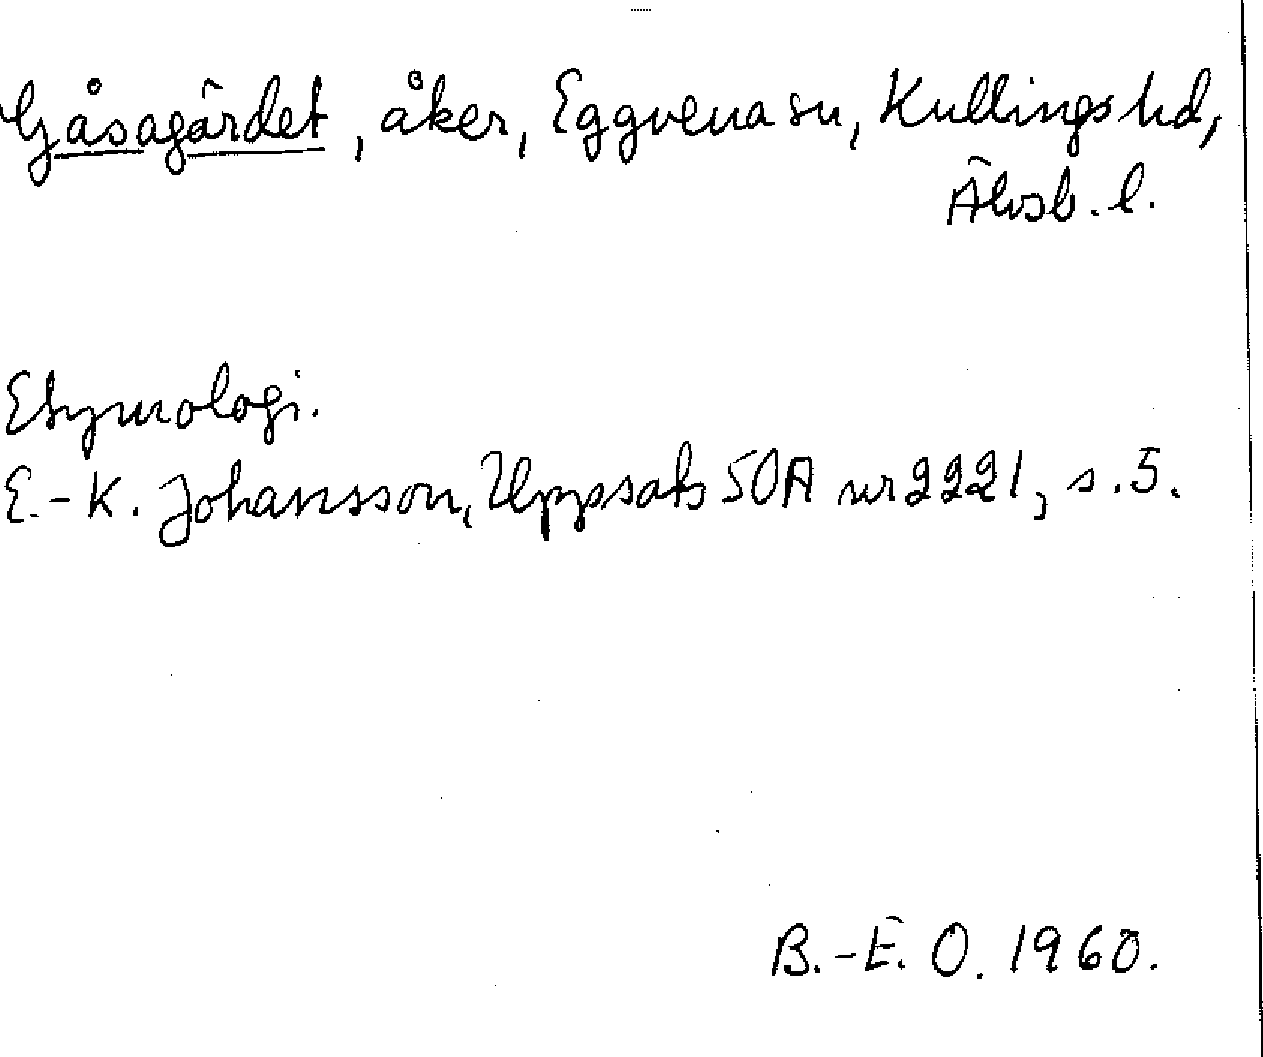 Gåsagärdet, åker, Eggvena sn, Kullings hd,
Älvsb. l.
Etymologi.
E.-K. Johansson, Uppsats 50A nr 2221, s. 5.
B.-E. O. 1960.